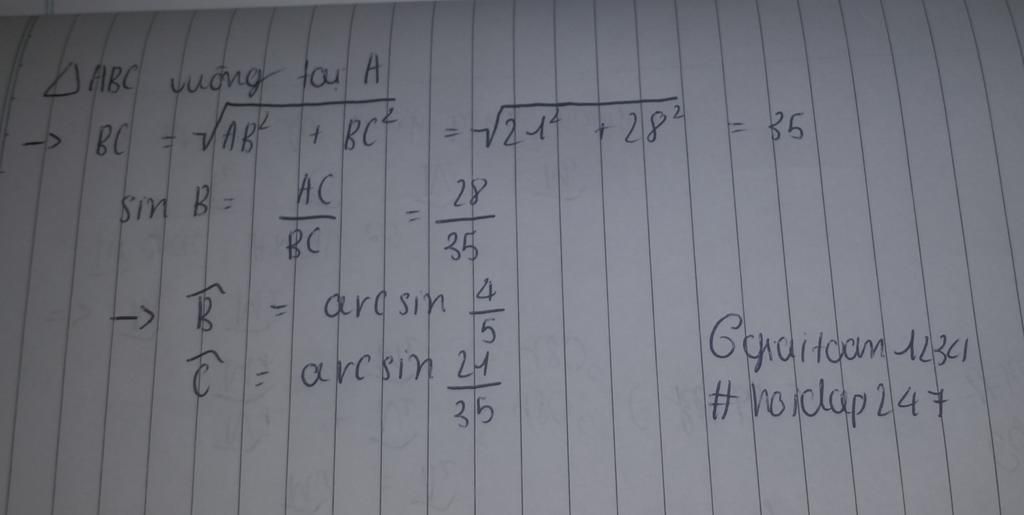 △ABC vuông tại A
→ BC = √AB² + BC² = √21² + 28² = 35
sin B = AC/BC = 28/35
→ B̂ = arcsin 4/5
Ĉ = arcsin 21/35
Ggiaitoan1234
#hoidap247